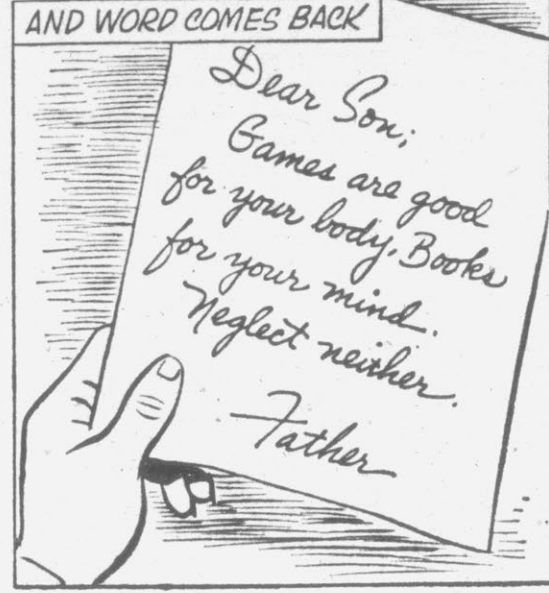 AND WORD COMES BACK
Dear Son;
Games are good
for your body. Books
for your mind.
Neglect neither.
Father